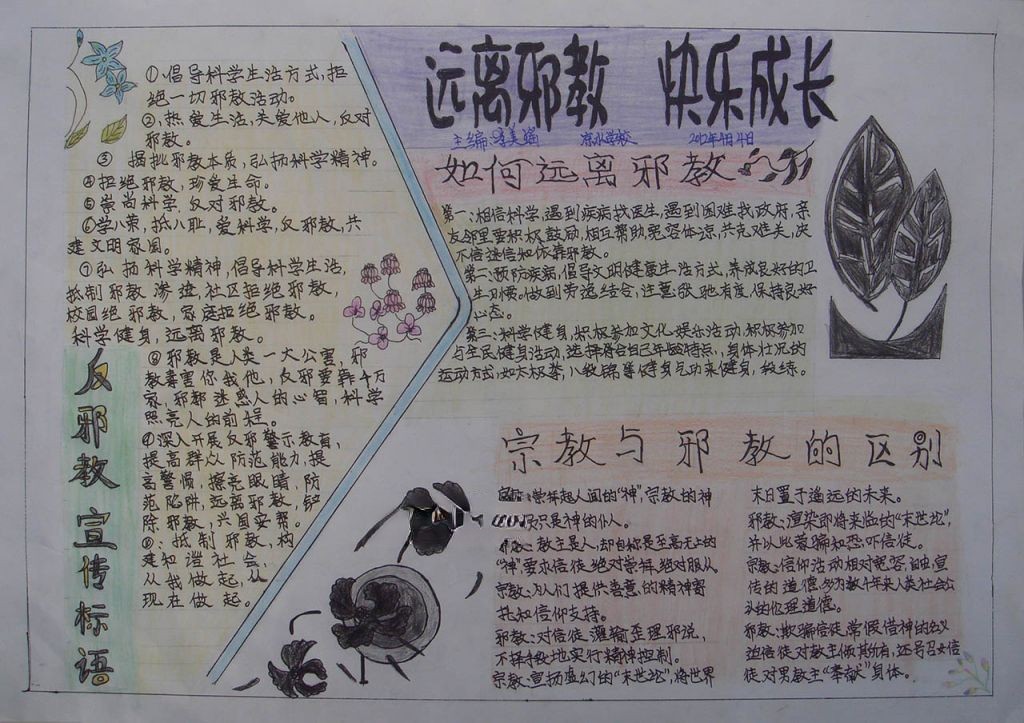 远离邪教 快乐成长
主编:
2012年4月4日
如何远离邪教
第一:相信科学,遇到疾病找医生,遇到困难找政府,亲
友邻里要积极鼓励,相互帮助宽容体凉,共克难关,决
不信迷信和依靠邪教。
第二:预防疾病,倡导文明健康生活方式,养成良好的卫
生习惯。做到劳逸结合,注意张驰有度,保持良好
心态。
第三:科学健身,积极参加文化娱乐活动,积极参加
与全民健身活动,选择符合自己年龄特点,身体状况的
运动方式,如太极拳,八段锦等健身气功来健身,锻练。
①倡导科学生活方式,拒
绝一切邪教活动。
②,热爱生活,关爱他人,反对
邪教。
③ 揭批邪教本质,弘扬科学精神。
④拒绝邪教,珍爱生命。
⑤崇尚科学,反对邪教。
⑥学八荣,抵八耻,爱科学,反邪教,共
建文明家园。
⑦弘扬科学精神,倡导科学生活,
抵制邪教渗透,社区拒绝邪教,
校园绝邪教,家庭拒绝邪教。
科学健身,远离邪教。
⑧邪教是人类一大公害,邪
教毒害你我他,反邪要靠千万
家,邪都迷惑人的心智,科学
照亮人的前程。
⑨深入开展反邪警示教育,
提高群众防范能力,提
高警惕,擦亮眼睛,防
范陷阱,远离邪教,铲
除邪教,兴国安帮。
⑩,抵制邪教,构
建和谐社会,
从我做起,从
现在做起。
反邪教宣传标语
宗教与邪教的区别
宗教:崇拜超人间的“神”,宗教的神
只是神的仆人。
教主是人,却自称是至高无上的
“神”要求信徒绝对崇拜,绝对服从
宗教:为人们提供善意的精神寄
托和信仰支持。
邪教:对信徒灌输歪理邪说,
不择手段地实行精神控制。
宗教:宣扬虚幻的“末世论”,将世界
末日置于遥远的未来。
邪教:渲染即将来临的“末世论”,
并以此蒙骗和恐吓信徒。
宗教:信仰活动相对宽容,
传的道德多为数千年来人类社会公
认的伦理道德。
邪教:欺骗信徒,常假借神的名义
迫信徒对教主倾其所有,还号召女信
徒对男教主“奉献”身体。